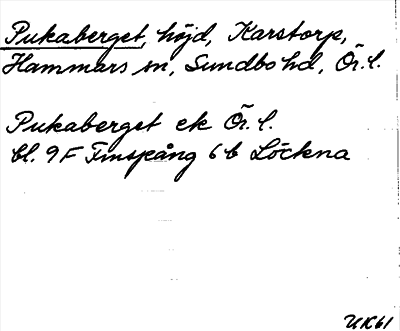 Pukaberget, höjd, Karstorp,
Hammars sn, Sundbo hd, Ör. l.
Pukaberget ek Ör. l.
bl. 9F Finspång 6b Löckna
UK61